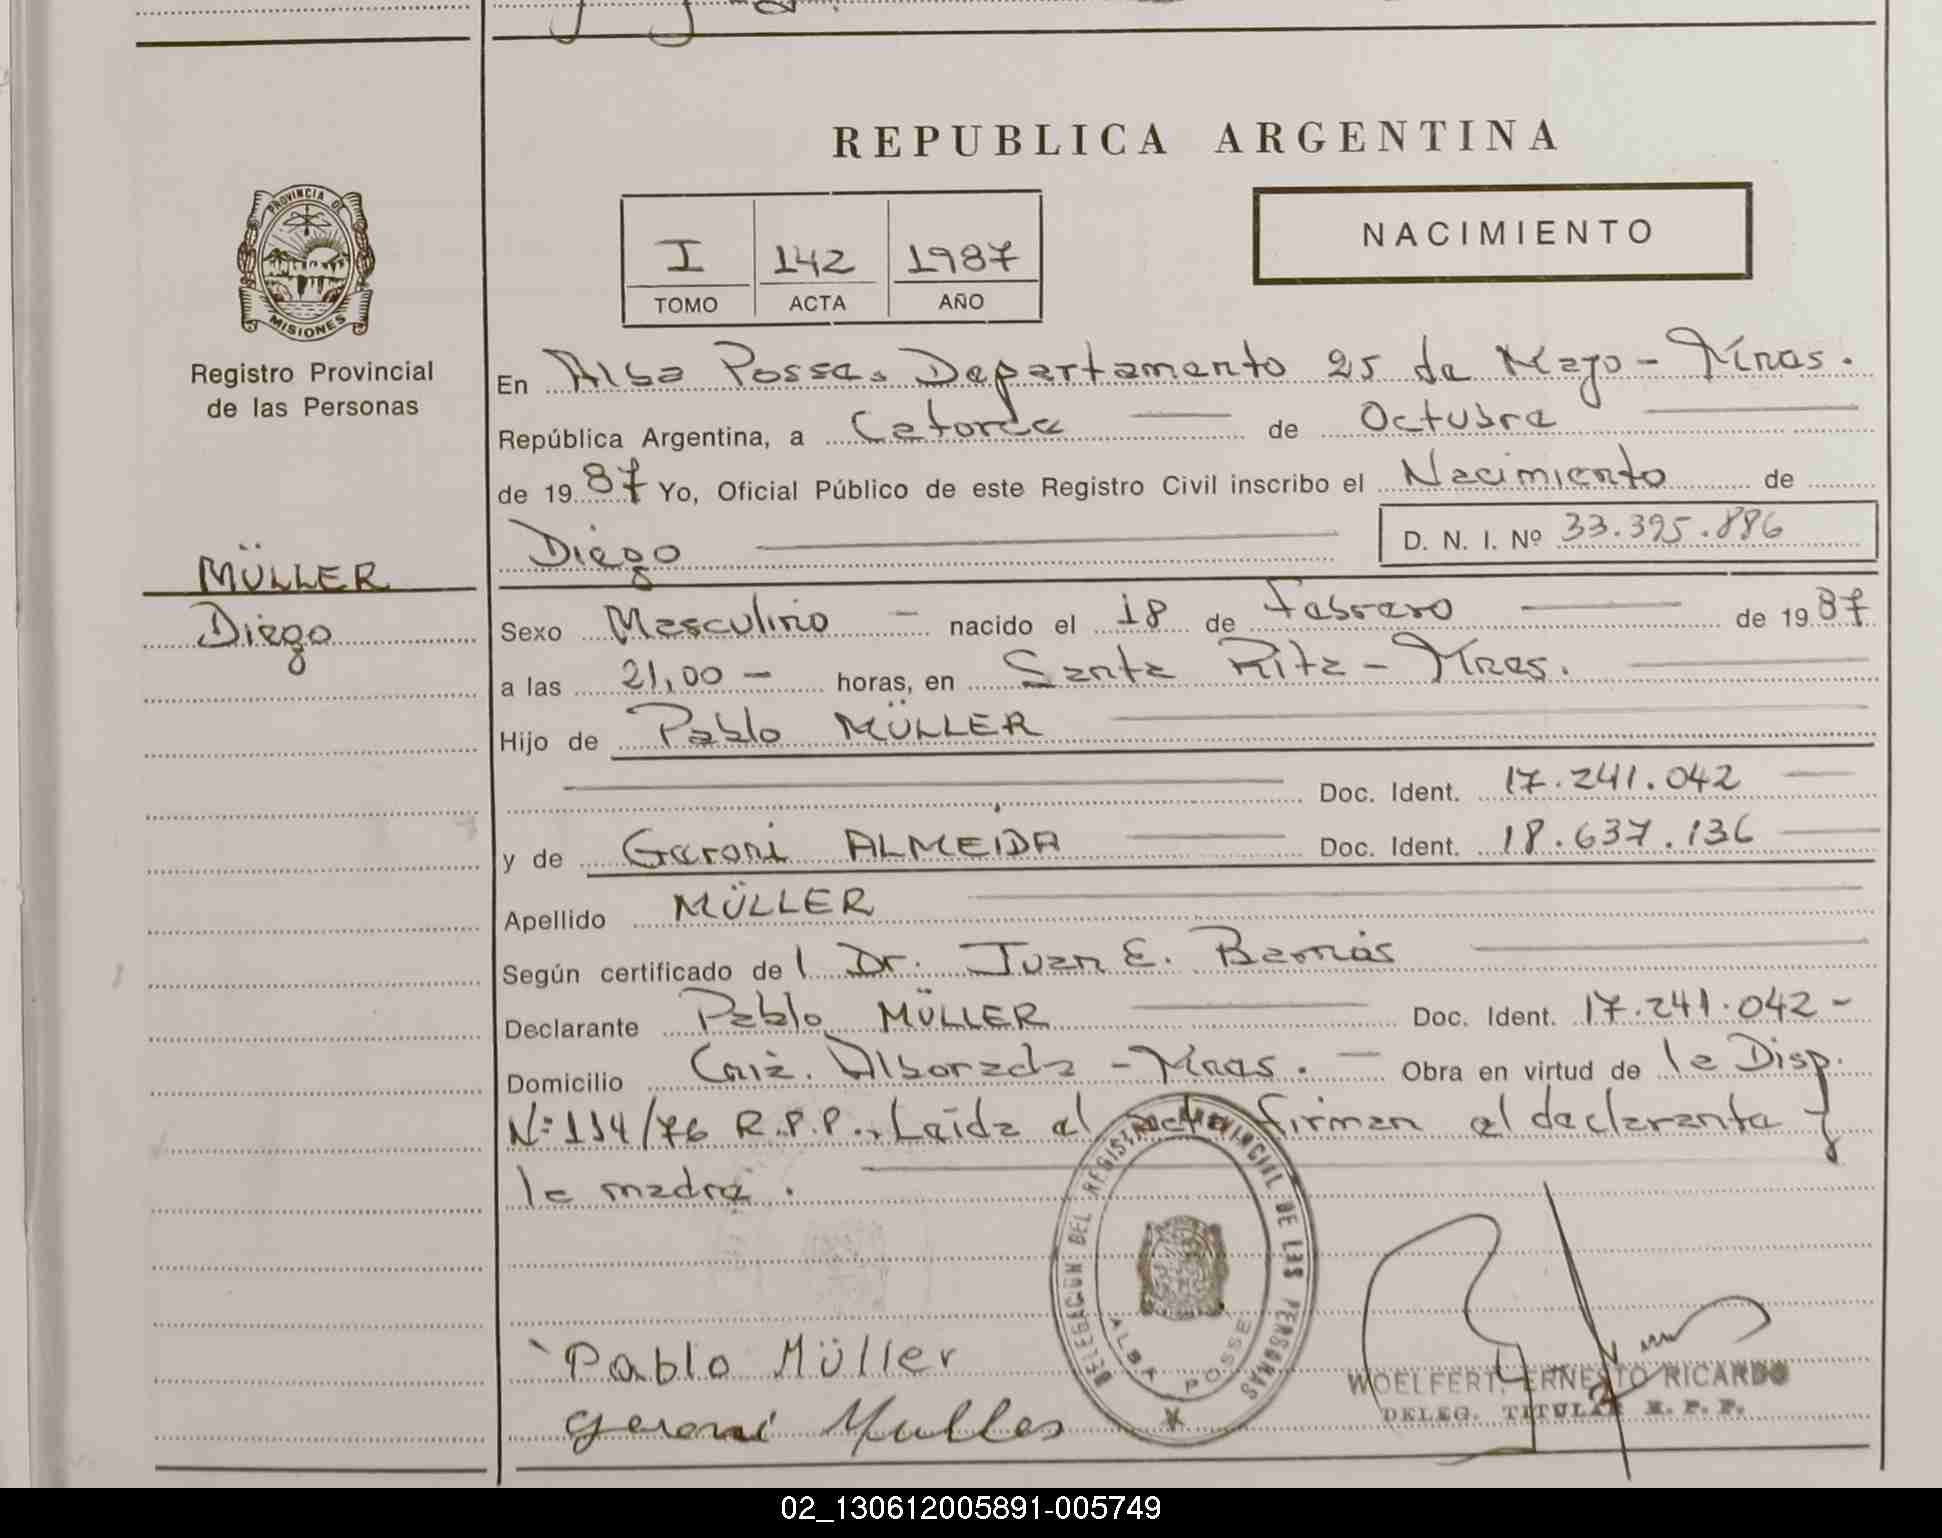 REPUBLICA ARGENTINA
PROVINCIA DE
MISIONES
Registro Provincial
de las Personas
I 142 1987
TOMO ACTA AÑO
NACIMIENTO
En Alba Posse, Departamento 25 de Mayo - Mnes.
República Argentina, a Catorce de Octubre
de 1987 Yo, Oficial Público de este Registro Civil inscribo el Nacimiento de
Diego D. N. I. Nº 33.395.886
MÜLLER
Diego
Sexo Masculino - nacido el 18 de Febrero de 1987
a las 21,00 - horas, en Santa Rita - Mnes.
Hijo de Pablo MÜLLER
Doc. Ident. 17.241.042
y de Geroni ALMEIDA Doc. Ident. 18.637.136
Apellido MÜLLER
Según certificado del Dr. Juan E.
Declarante Pablo MÜLLER Doc. Ident. 17.241.042 -
Domicilio Alborada - Mnes. - Obra en virtud de la Disp.
Nº 114/76 R.P.P., Leída el acta firman el declarante y
la madre.
DELEGACION DEL REGISTRO PROVINCIAL DE LAS PERSONAS
ALBA POSSE
Pablo Müller
Geroni Muller
WOELFERT, ERNESTO RICARDO
DELEG. TITULAR R. P. P.
02_130612005891-005749